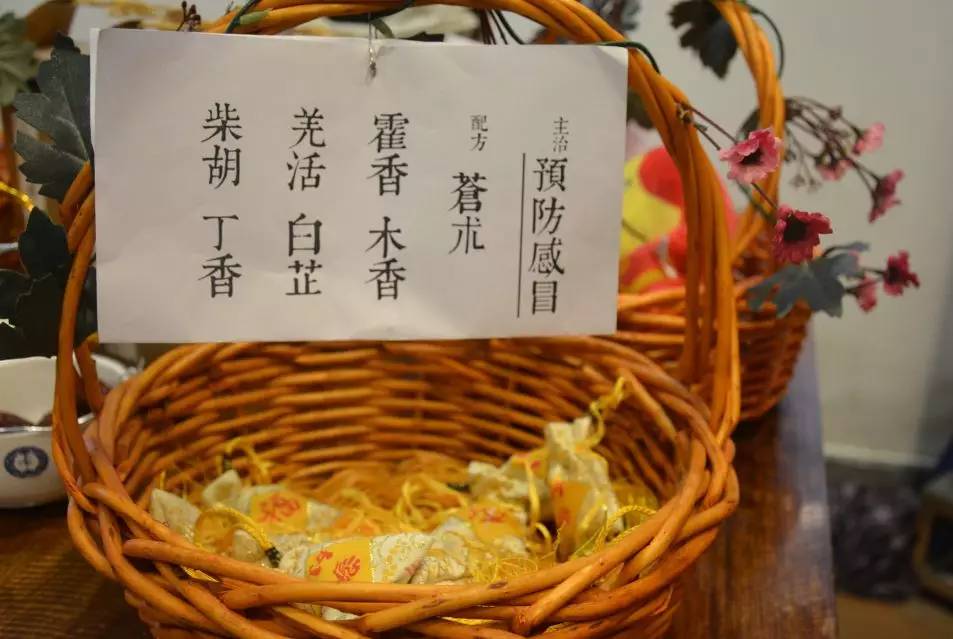 主治 預防感冒
配方 蒼朮
霍香 木香
羌活 白芷
柴胡 丁香